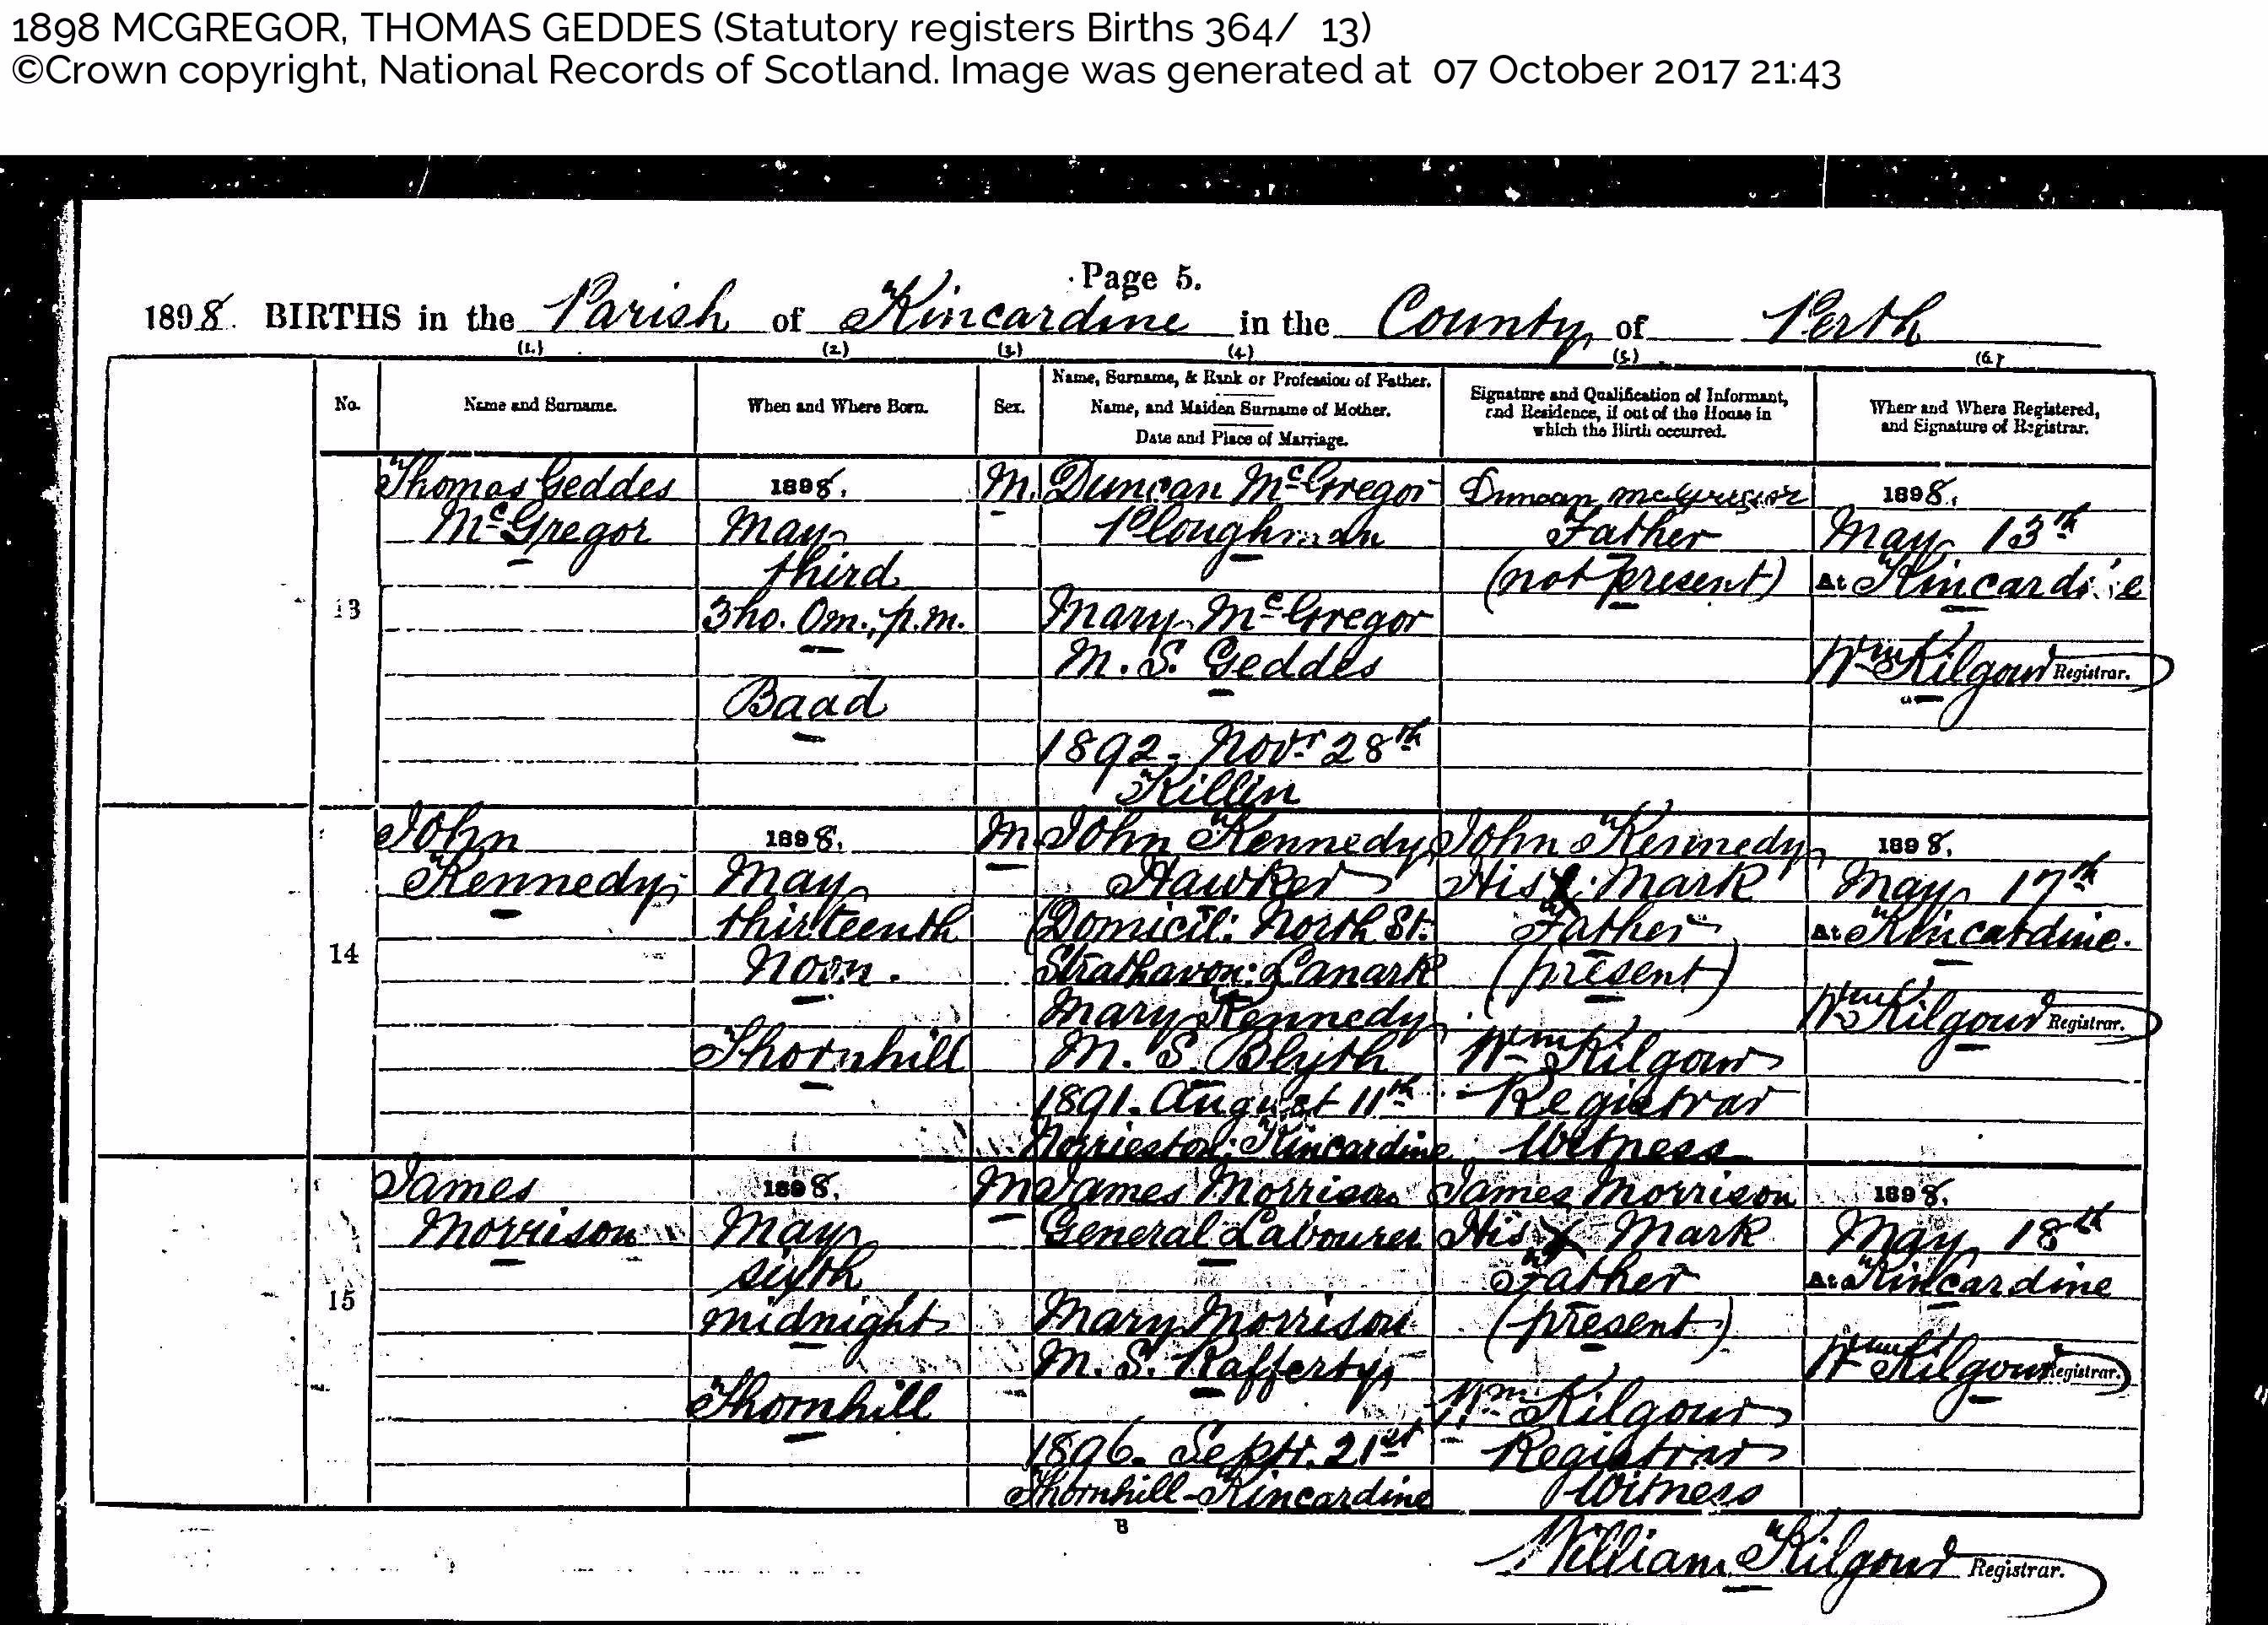 1898 MCGREGOR, THOMAS GEDDES (Statutory registers Births 364/ 13)
©Crown copyright, National Records of Scotland. Image was generated at 07 October 2017 21:43
Page 5.
1898. BIRTHS in the Parish of Kincardine in the County of Perth
(1.) (2.) (3.) (4.) (5.) (6.)
No.
Name and Surname.
When and Where Born.
Sex.
Name, Surname, & Rank or Profession of Father.
Name, and Maiden Surname of Mother.
Date and Place of Marriage.
Signature and Qualification of Informant,
and Residence, if out of the House in
which the Birth occurred.
When and Where Registered,
and Signature of Registrar.
13
Thomas Geddes
McGregor
1898.
May
third
3ho. 0m., p.m.
Baad
M.
Duncan McGregor
Ploughman
Mary McGregor
M. S. Geddes
1892. Novr 28th
Killin
Duncan McGregor
Father
(not present)
1898.
May 13th
At Kincardine
Wm Kilgour Registrar.
14
John
Kennedy
1898.
May
thirteenth
Noon.
Thornhill
M.
John Kennedy
Hawker
(Domicil: North St.
Strathavon: Lanark
Mary Kennedy
M. S. Blyth
1891. August 11th
Norrieston: Kincardine
John Kennedy
His X Mark
Father
(present)
Wm Kilgour
Registrar
Witness
1898.
May 17th
At Kincardine.
Wm Kilgour Registrar.
15
James
Morrison
1898.
May
sixth
midnight
Thornhill
M
James Morrison
General Labourer
Mary Morrison
M. S. Rafferty
1896. Septr. 21st
Thornhill-Kincardine
James Morrison
His X Mark
Father
(present)
Wm Kilgour
Registrar
Witness
1898.
May 18th
At Kincardine
Wm Kilgour Registrar.
B
William Kilgour Registrar.